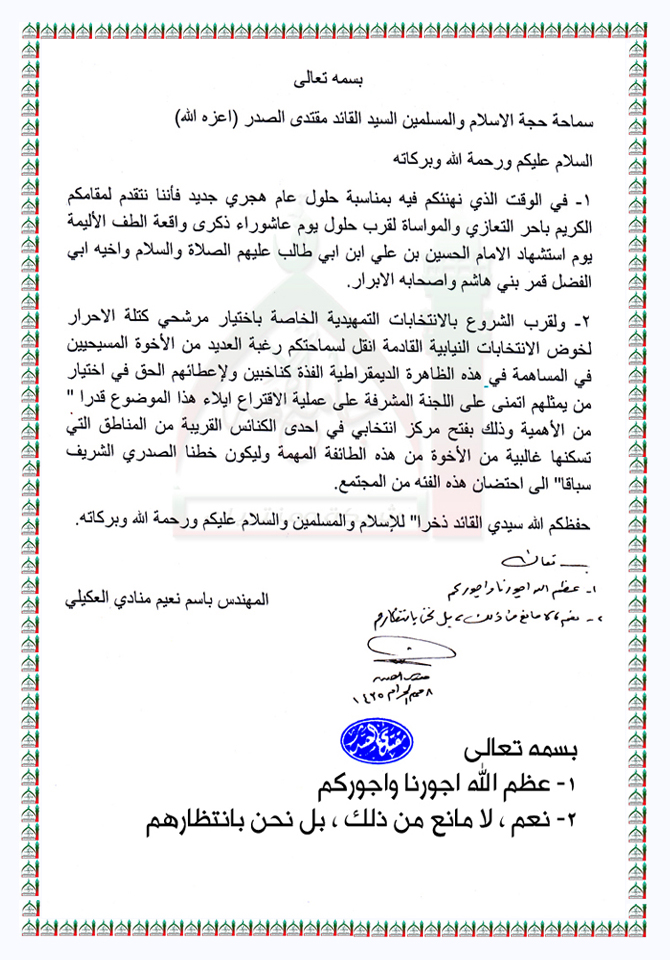 بسمه تعالى
سماحة حجة الاسلام والمسلمين السيد القائد مقتدى الصدر (اعزه الله)
السلام عليكم ورحمة الله وبركاته
١- في الوقت الذي نهنئكم فيه بمناسبة حلول عام هجري جديد فأننا نتقدم لمقامكم
الكريم باحر التعازي والمواساة لقرب حلول يوم عاشوراء ذكرى واقعة الطف الأليمة
يوم استشهاد الامام الحسين بن علي ابن ابي طالب عليهم الصلاة والسلام واخيه ابي
الفضل قمر بني هاشم واصحابه الابرار.
٢- ولقرب الشروع بالانتخابات التمهيدية الخاصة باختيار مرشحي كتلة الاحرار
لخوض الانتخابات النيابية القادمة انقل لسماحتكم رغبة العديد من الأخوة المسيحيين
في المساهمة في هذه الظاهرة الديمقراطية الفذة كناخبين ولإعطائهم الحق في اختيار
من يمثلهم اتمنى على اللجنة المشرفة على عملية الاقتراع ايلاء هذا الموضوع قدرا "
من الأهمية وذلك بفتح مركز انتخابي في احدى الكنائس القريبة من المناطق التي
تسكنها غالبية من الأخوة من هذه الطائفة المهمة وليكون خطنا الصدري الشريف
سباقا" الى احتضان هذه الفئه من المجتمع.
حفظكم الله سيدي القائد ذخرا" للإسلام والمسلمين والسلام عليكم ورحمة الله وبركاته.
بسمه تعالى
١- عظم الله اجورنا واجوركم
المهندس باسم نعيم منادي العكيلي
٢- نعم، لا مانع من ذلك، بل نحن بانتظارهم
مقتدى الصدر
٨ محرم الحرام ١٤٣٥
مقتدى الصدر
بسمه تعالى
١- عظم الله اجورنا واجوركم
٢- نعم ، لا مانع من ذلك ، بل نحن بانتظارهم